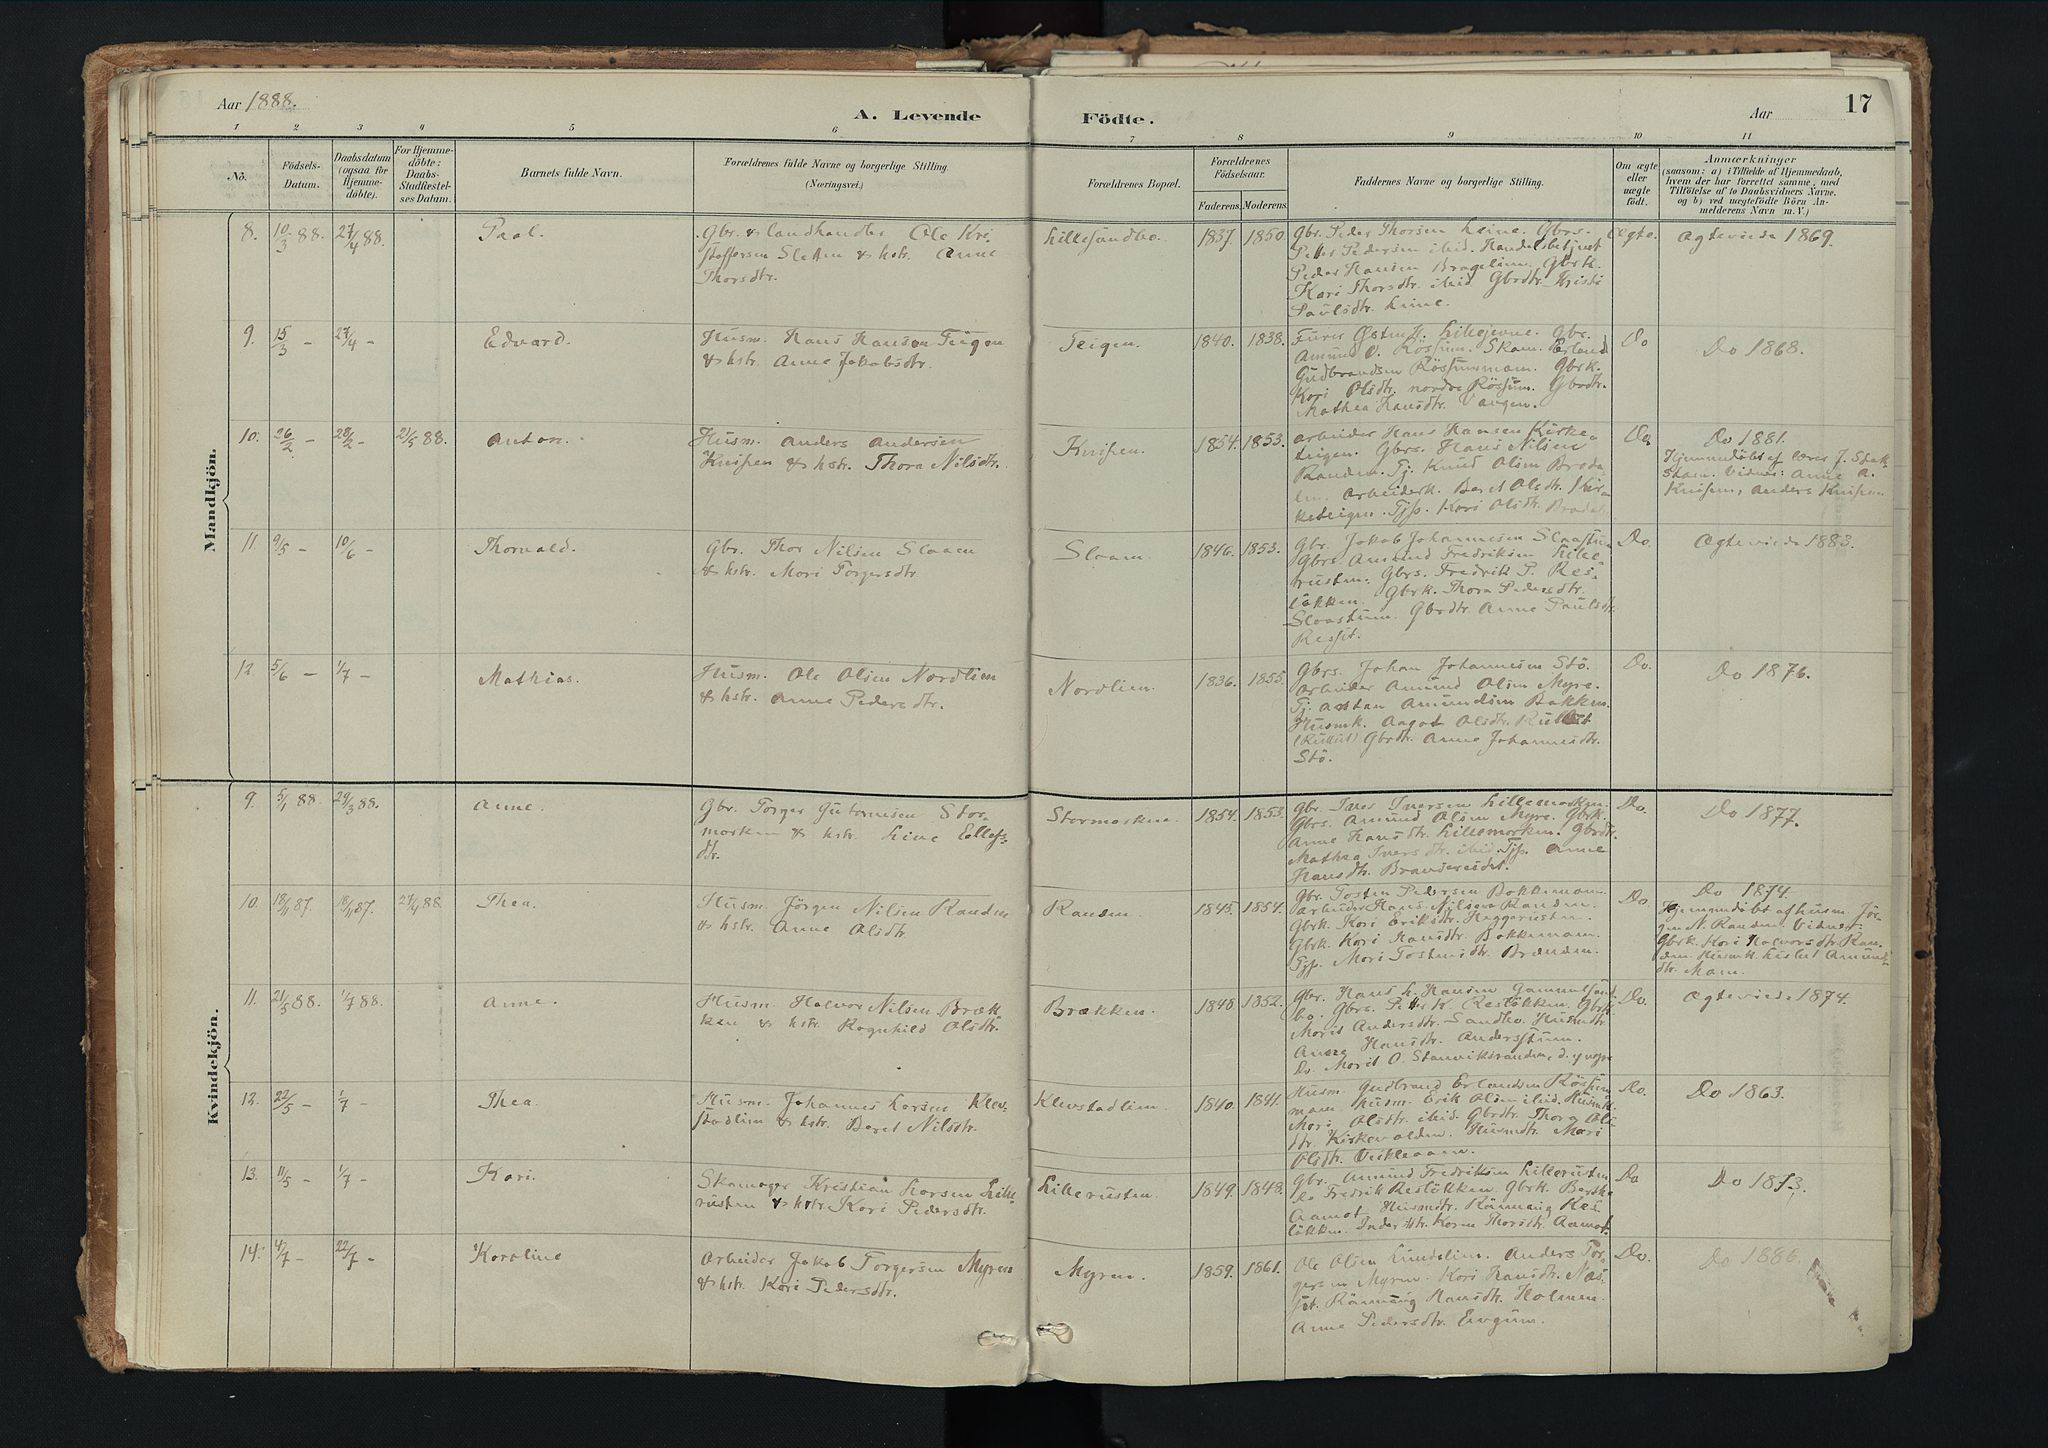 Aar 1888.
A. Levende Födte.
Aar
17
1 2 3 4 5 6 7 8 9 10 11
No.
Födsels-Datum.
Daabsdatum (ogsaa for Hjemmedöbte).
For Hjemmedöbte: Daabs-Stadfæstelses Datum.
Barnets fulde Navn.
Forældrenes fulde Navne og borgerlige Stilling
(Næringsvei.)
Forældrenes Bopæl.
Forældrenes Födselsaar.
Faderens. Moderens.
Faddernes Navne og borgerlige Stilling.
Om ægte eller uægte födt.
Anmærkninger
(saasom: a) i Tilfælde af Hjemmedaab,
hvem der har forrettet samme, med
Tilföielse af to Daabsvidners Navne,
og b) ved uægtefödte Börn An-
melderens Navn m. V.)
Mandkjön.
8. 10/3 88. 27/4 88. Paal.
Gbr. & Landhandler Ole Kri
stoffersen Sletten & hstr. Anne
Thorsdtr.
Lillesandbo. 1837. 1850.
Gbr. Peder Thorsen Leine. Gbrs.
Petter Pedersen ibid. Handelsbetjent
Peder Hansen Bragelien. Gbrk.
Kari Thorsdtr. ibid Gbrdtr. Kristi
Paulsdtr. Leine.
Ægte. Ægteviede 1869.
9. 15/3 - 27/4 - Edvard.
Husm. Hans Hansen Teigen
& hstr. Anne Jakobsdtr.
Teigen. 1840. 1838.
Furer Østen H. Lillegjevne. Gbr.
Amund O. Rössum. Skom. Erland
Gudbrandsen Rössummoen. Gbrk.
Kari Olsdtr. nordre Rössum. Gbrdtr.
Mathea Hansdtr. Vangen.
Do Do 1868.
10. 26/2 - 28/2 - 21/5 88. Anton.
Husm. Anders Andersen
Knipen & hstr. Thora Nilsdtr.
Knipen. 1854. 1853.
Arbeider Hans Hansen Kirke-
teigen. Gbrs. Hans Nilsen
Randen. Tj. Knud Olsen Breda
len. Arbeiderk. Beret Olsdtr. Kir-
keteigen. Tjp. Kari Olsdtr. Bredal.
Do Do 1881.
Hjemmedöbt af lærer J. Stak-
ston. Vidner: Anne A.
Knipen, Anders Knipen.
11. 9/5 - 10/6 - Thorvald.
Gbr. Thor Nilsen Slaaen
& hstr. Mari Torgersdtr.
Slaaen. 1846. 1853.
Gbr. Jakob Johannesen Slaastuen
Gbrs. Amund Fredriksen Lille-
rusten. Gbrs. Fredrik P. Res-
lökken. Gbrk. Thora Pedersdtr.
Slaastuen. Gbrdtr. Anne Paulsdtr.
Do. Ægteviede 1883.
12. 5/6 - 1/7 - Mathias.
Husm. Ole Olsen Nordlien
& hstr. Anne Pedersdtr.
Nordlien. 1836. 1855.
Gbrs. Johan Johannesen Stö.
Arbeider Amund Olsen Myre.
Tj. Amundsen Bakken.
Husmk. Aagot Olsdtr.
Gbrdtr. Anne Johannesdtr.
Stö.
Do. Do 1876.
Kvindekjön.
9. 5/1 88. 24/3 88. Anne.
Gbr. Torger Gutormsen Stor-
morken & hstr. Line Ellefs-
dtr.
Stormorken. 1854. 1853.
Gbr. Iver Iversen Lillemorken.
Gbrs. Amund Olsen Myre. Gbrk.
Anne Hansdtr. Lillemorken. Gbrdtr.
Mathea Iversdtr. ibid. Tjp. Anne
Hansdtr.
Do. Do 1877.
10. 18/11 87. 18/11 87. 27/4 88. Thea.
Husm. Jörgen Nilsen Randen
& hstr. Anne Olsdtr.
Randen. 1845. 1854.
Gbr. Tosten Pedersen Bakkemoen.
Arbeider Hans Nilsen Randen.
Gbrk. Kari Eriksdtr. Heggerusten.
Gbrk. Kari Hansdtr. Bakkemoen.
Tjp. Mari Tostensdtr. Brænden.
Do. Do 1874.
Hjemmedöbt af husm. Jör-
gen N. Randen. Vidner:
Gbrk. Kari Halvorsdtr. Ran-
den. Husmk. Lisbet Amunds-
dtr. Moen.
11. 21/5 88. 1/7 88. Anne.
Husm. Halvor Nilsen Bræk-
ken & hstr. Ragnhild Olsdtr.
Brækken. 1848. 1852.
Gbr. Hans H. Hansen Gammelsand-
bo. Gbrs. Petter K. Reslökken. Gbrk.
Marit Andersdtr. Sandbo. Husmdtr.
Anne Hansdtr. Andersstuen.
Do. Marit O. Stamviksranden, d. yngre
Do. Ægteviede 1874.
12. 22/5 - 1/7 - Thea.
Husm. Johannes Larsen Klev-
stadlien & hstr. Beret Nilsdtr.
Klevstadlien. 1840. 1841.
Husm. Gudbrand Erlandsen Rössum
moen. Husm. Erik Olsen ibid. Husmk.
Mari Olsdtr. ibid. Gbrdtr. Thora Ols
dtr. Kirkevolden. Husmdtr. Mari
Olsdtr. Veikleaaen.
Do. Do 1863.
13. 11/5 - 1/7 - Kari.
Skomager Kristian Larsen Lille-
rusten & hstr. Kari Pedersdtr.
Lillerusten. 1849. 1848.
Gbr. Amund Fredriksen Lillerusten
Do Fredrik Reslökken. Gbrk. Berthe
Aamot. Husmdtr. Rönnaug Res-
lökken. Inderstr. Karen Thorsdtr. Aamot.
Do Do 1873.
14. 4/7 - 22/7 - Karoline
Arbeider Jakob Torgersen Myren
& hstr. Kari Pedersdtr.
Myren. 1859. 1861.
Ole Olsen Lundelien. Anders Tor-
gersen Myren. Kari Hansdtr. Næs-
set. Rönnaug Hansdtr. Holmen.
Anne Pedersdtr.
Do. Do 1886.